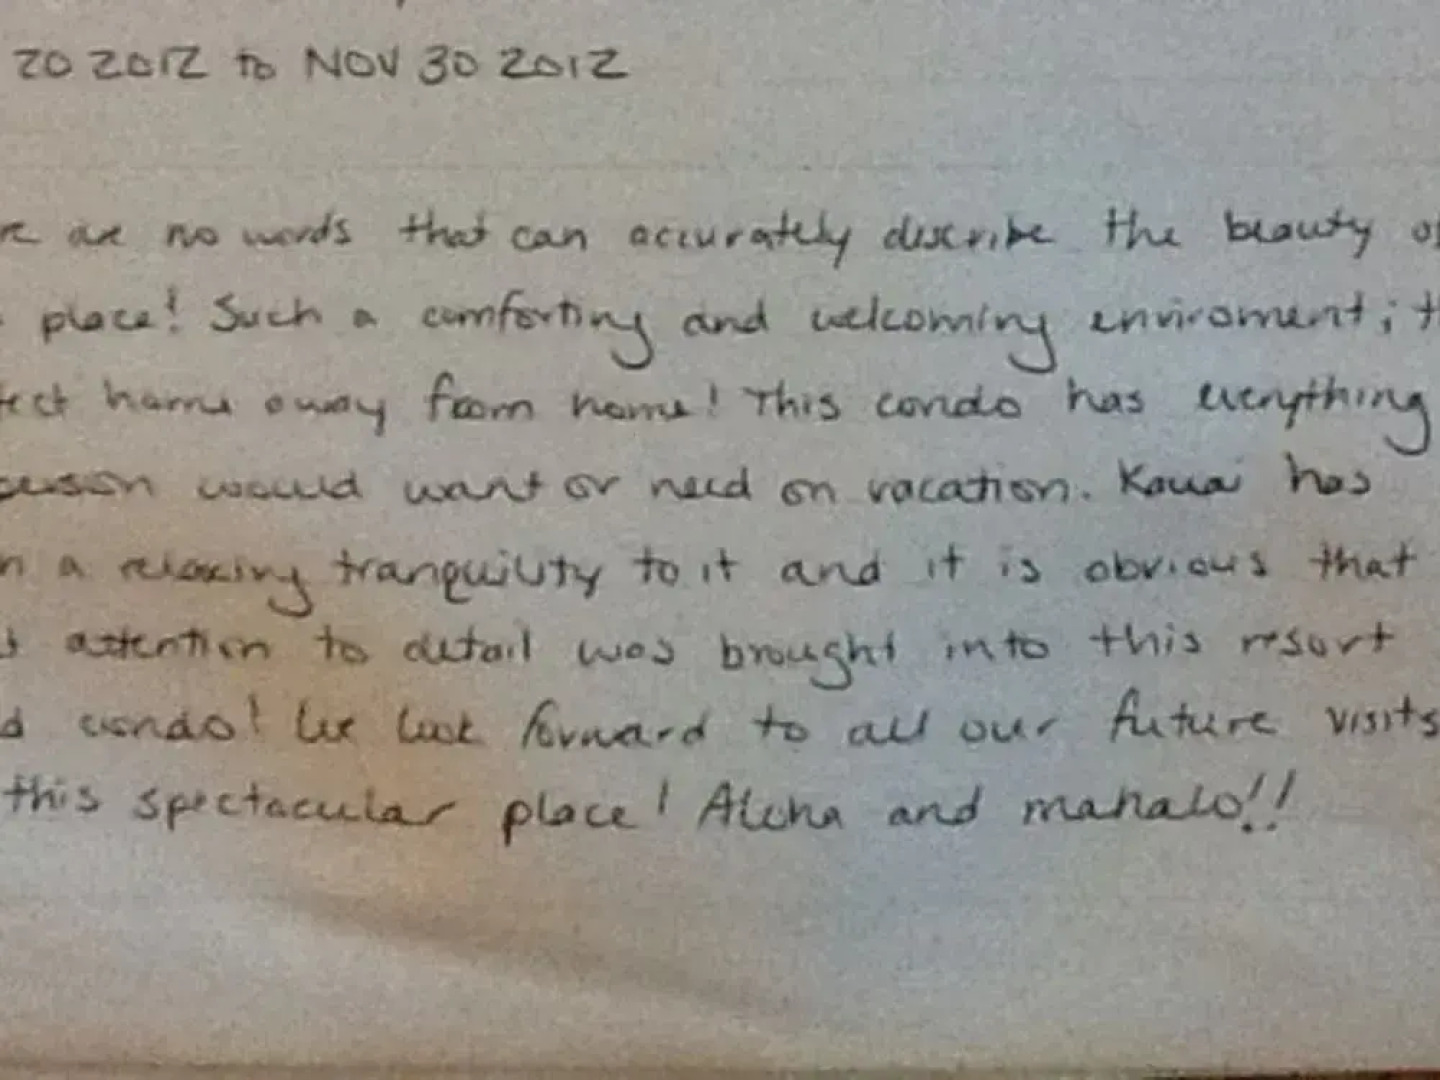 20 2012 to NOV 30 2012
re are no words that can accurately discribe the beauty of
place! Such a comforting and welcoming enviroment; th
fect home away from home! This condo has everything
person would want or need on vacation. Kauai has
n a relaxing tranquility to it and it is obvious that
t attention to detail was brought into this resort
d condo! We look forward to all our future visits
this spectacular place! Aloha and mahalo!!